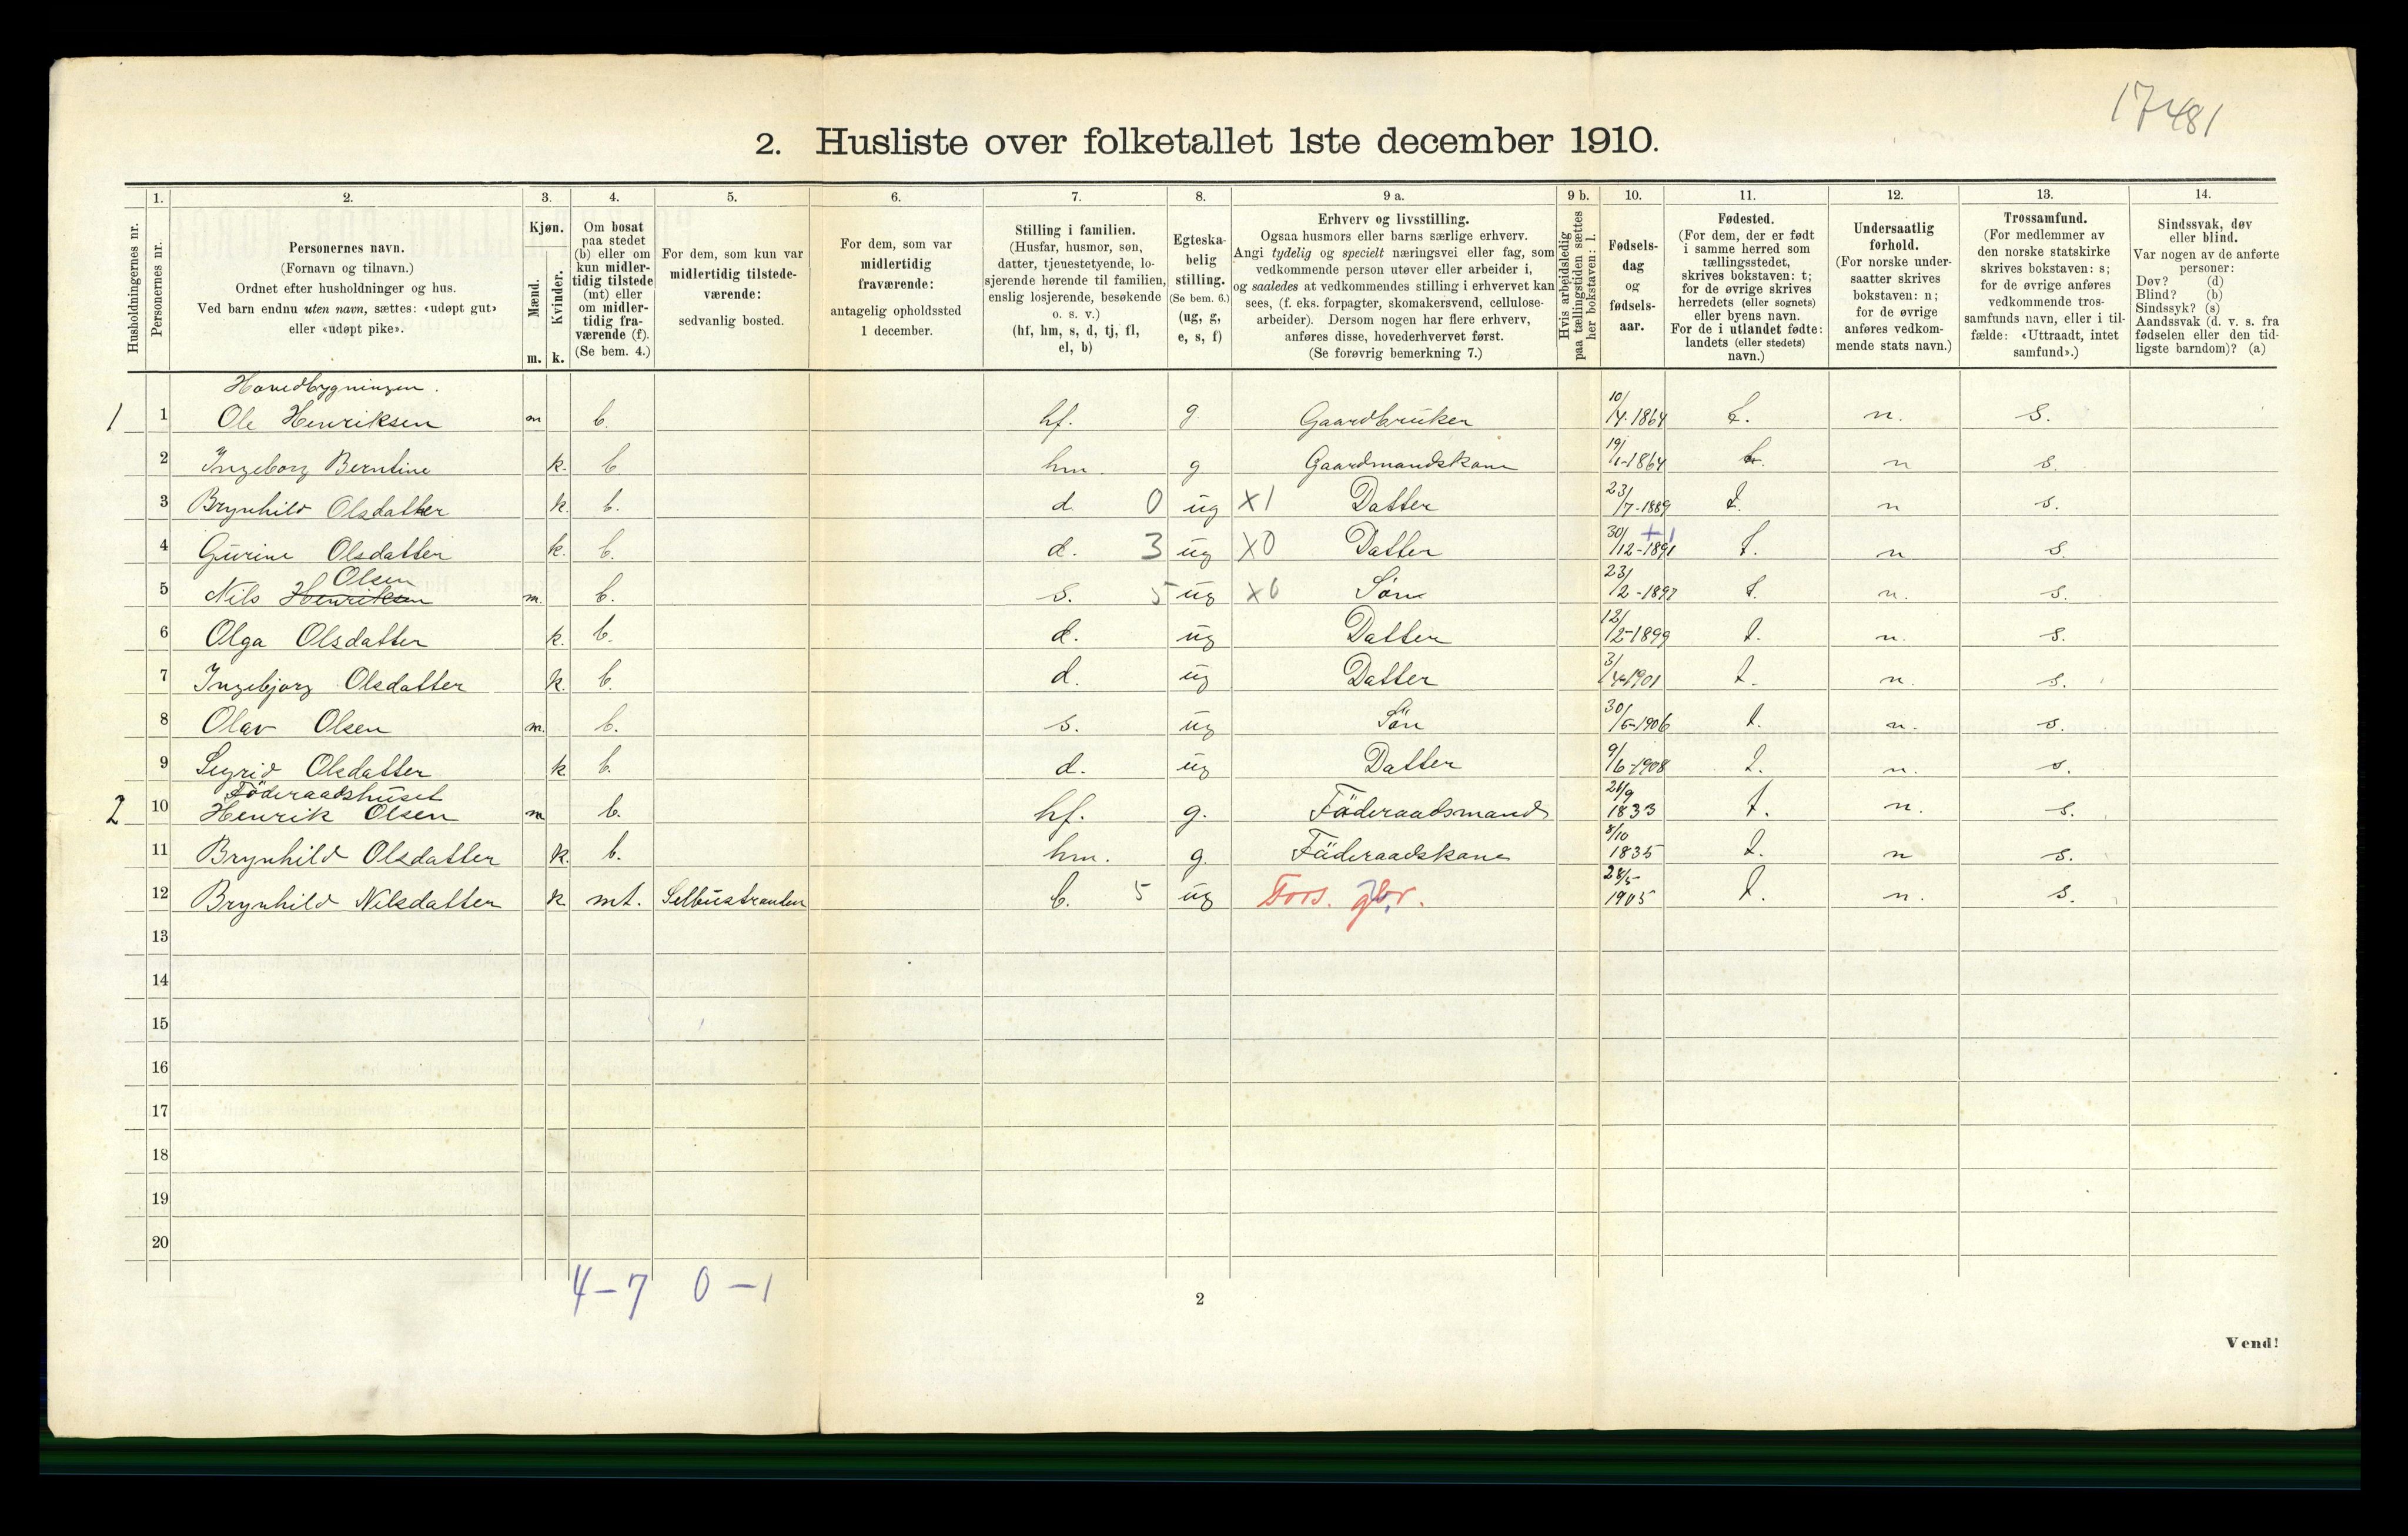 17481
2. Husliste over folketallet 1ste december 1910.
Husholdningernes nr.
1.
Personernes nr.
2.
Personernes navn.
(Fornavn og tilnavn.)
Ordnet efter husholdninger og hus.
Ved barn endnu uten navn, sættes: «udøpt gut»
eller «udøpt pike».
3.
Kjøn.
Mænd.
Kvinder.
m. k.
4.
Om bosat
paa stedet
(b) eller om
kun midler-
tidig tilstede
(mt) eller
om midler-
tidig fra-
værende (f).
(Se bem. 4.)
5.
For dem, som kun var
midlertidig tilstede-
værende:
sedvanlig bosted.
6.
For dem, som var
midlertidig
fraværende:
antagelig opholdssted
1 december.
7.
Stilling i familien.
(Husfar, husmor, søn,
datter, tjenestetyende, lo-
sjerende hørende til familien,
enslig losjerende, besøkende
o. s. v.)
(hf, hm, s, d, tj, fl,
el, b)
8.
Egteska-
belig
stilling.
(Se bem. 6.)
(ug, g,
e, s, f)
9 a.
Erhverv og livsstilling.
Ogsaa husmors eller barns særlige erhverv.
Angi tydelig og specielt næringsvei eller fag, som
vedkommende person utøver eller arbeider i,
og saaledes at vedkommendes stilling i erhvervet kan
sees, (f. eks. forpagter, skomakersvend, cellulose-
arbeider). Dersom nogen har flere erhverv,
anføres disse, hovederhvervet først.
(Se forøvrig bemerkning 7.)
9 b.
Hvis arbeidsledig
paa tællingstiden sættes
her bokstaven: l.
10.
Fødsels-
dag
og
fødsels-
aar.
11.
Fødested.
(For dem, der er født
i samme herred som
tællingsstedet,
skrives bokstaven: t;
for de øvrige skrives
herredets (eller sognets)
eller byens navn.
For de i utlandet fødte:
landets (eller stedets)
navn.)
12.
Undersaatlig
forhold.
(For norske under-
saatter skrives
bokstaven: n;
for de øvrige
anføres vedkom-
mende stats navn.)
13.
Trossamfund.
(For medlemmer av
den norske statskirke
skrives bokstaven: s;
for de øvrige anføres
vedkommende tros-
samfunds navn, eller i til-
fælde: «Uttraadt, intet
samfund».)
14.
Sindssvak, døv
eller blind.
Var nogen av de anførte
personer:
Døv? (d)
Blind? (b)
Sindssyk? (s)
Aandssvak (d. v. s. fra
fødselen eller den tid-
ligste barndom)? (a)
Hovedbygningen.
1 1 Ole Henriksen m b. hf. g Gaardbruker 10/4-1864 t. n. s.
2 Ingeborg Berntine k. b hm. g Gaardmandskone 19/1-1864 t. n s.
3 Brynhild Olsdatter k. b. d. 0 ug X1 Datter 23/7-1889 t. n s.
4 Gurine Olsdatter k. b. d. 3 ug X0 Datter 30/12-1891 +1 t. n s.
Olsen
5 Nils Henriksen m. b. s. 5 ug X0 Søn 23/2-1897 t. n. s.
6 Olga Olsdatter k. b. d. ug Datter 12/2-1899 t. n. s.
7 Ingebjorg Olsdatter k. b. d. ug Datter 3/4-1901 t. n. s.
8 Olav Olsen m. b. s. ug Søn 30/5-1906 t. n. s.
9 Sigrid Olsdatter k b. d. ug Datter 9/6-1908 t. n. s.
Föderaadshuset
2 10 Henrik Olsen m b. hf. g. Föderaadsmand 21/9 1833 t. n. s.
11 Brynhild Olsdatter k. b. hm. g. Föderaadskone 8/10 1835 t. n s.
12 Brynhild Nilsdatter k mt. Selbustranden b. 5 ug Fors. gbr. 28/5 1905 t. n. s.
13
14
15
16
17
18
19
20
4-7 0-1
2
Vend!